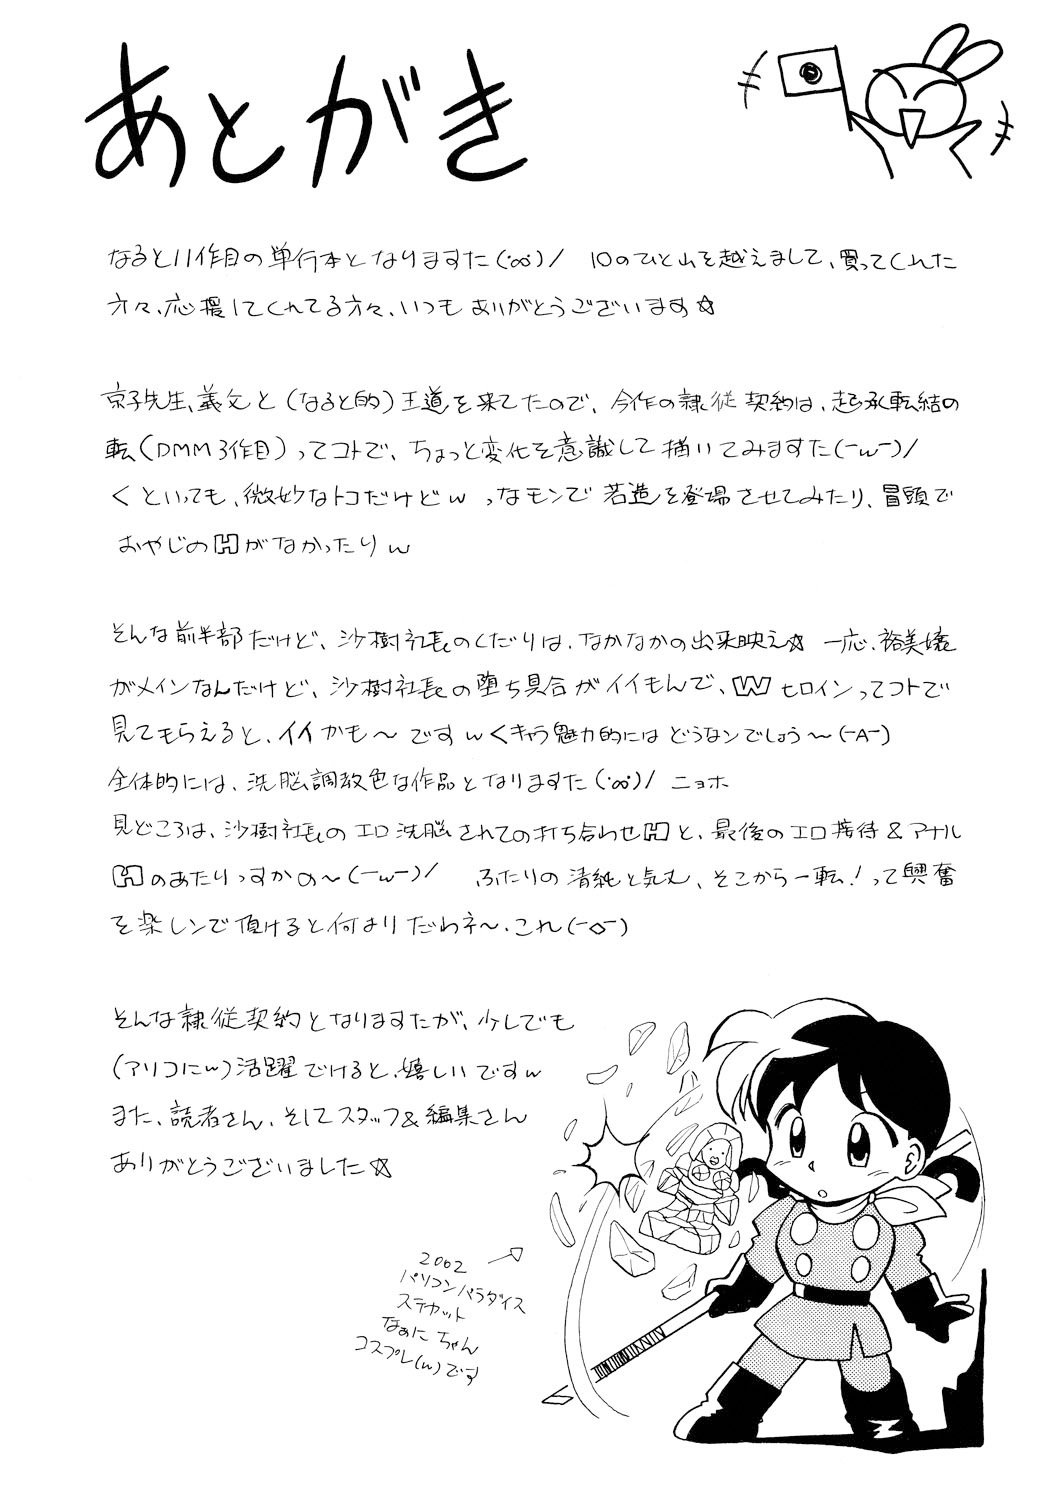 あとがき
なると11作目の単行本となりますた(・∞・)/ 10のひと山を越えまして、買ってくれた
方々、応援してくれてる方々、いつもありがとうございます☆
京子先生、義父と(なると的)王道を来てたので、今作の隷従契約は、起承転結の
転(DMM3作目)ってコトで、ちょっと変化を意識して描いてみますた(ーwー)/
くといっても、微妙なトコだけどw っなモンで若造を登場させてみたり、冒頭で
おやじのHがなかったりw
そんな前半部だけど、沙樹社長のくだりは、なかなかの出来映え☆ 一応、裕美嬢
がメインなんだけど、沙樹社長の堕ち具合がイイもんで、Wヒロインってコトで
見てもらえると、イイかも〜ですw くキャラ魅力的にはどうなンでしょう〜(ーAー)
全体的には、洗脳調教色な作品となりますた(・∞・)/ ニョホ
見どころは、沙樹社長のエロ洗脳されての打ち合わせHと、最後のエロ接待&アナル
Hのあたりっすかの〜(ーwー)/ ふたりの清純と気丈、そこから一転!って興奮
を楽しンで頂けると何よりだわネ〜、これ(ー◇ー)
そんな隷従契約となりますたが、少しでも
(アソコにw)活躍でけると、嬉しいですw
また、読者さん、そしてスタッフ&編集さん
ありがとうございました☆
2002
パソコンパラダイス
ステカット
なぁに ちゃん
コスプレ(w)です